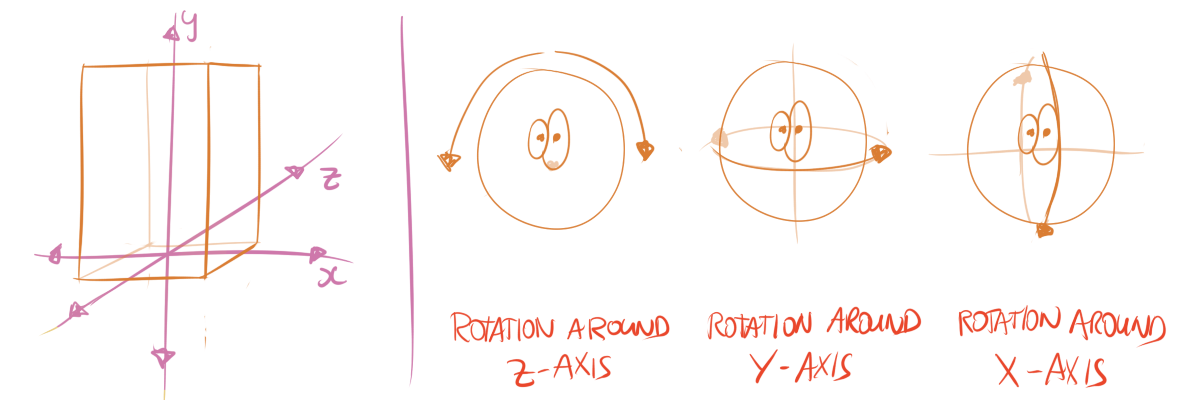 y
z
x
ROTATION AROUND
Z-AXIS
ROTATION AROUND
Y-AXIS
ROTATION AROUND
X-AXIS